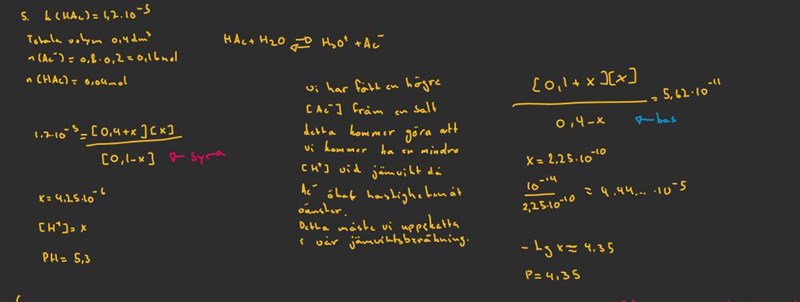 5. k(HAc)=1,2·10^-5
Totala volym 0,4dm³
n(Ac⁻)=0,8·0,2=0,16mol
n(HAc)=0,04mol
HAc+H2O ⇌ H3O⁺+Ac⁻
1.2·10^-5=[0,4+x][x]
[0,1-x] ← syra
x=4,25·10^-6
[H⁺]=x
PH=5,3
vi har fått en högre
[Ac⁻] från en salt
detta kommer göra att
vi kommer ha en mindre
[H⁺] vid jämvikt då
Ac⁻ ökat hastigheten åt
vänster.
Detta måste vi uppskatta
i vår jämviktsberäkning.
[0,1+x][x]
0,4-x
=5,62·10^-11
← bas
x=2,25·10^-10
10^-14
2,25·10^-10
≈ 4.44...·10^-5
-lg x≈4.35
P=4,35